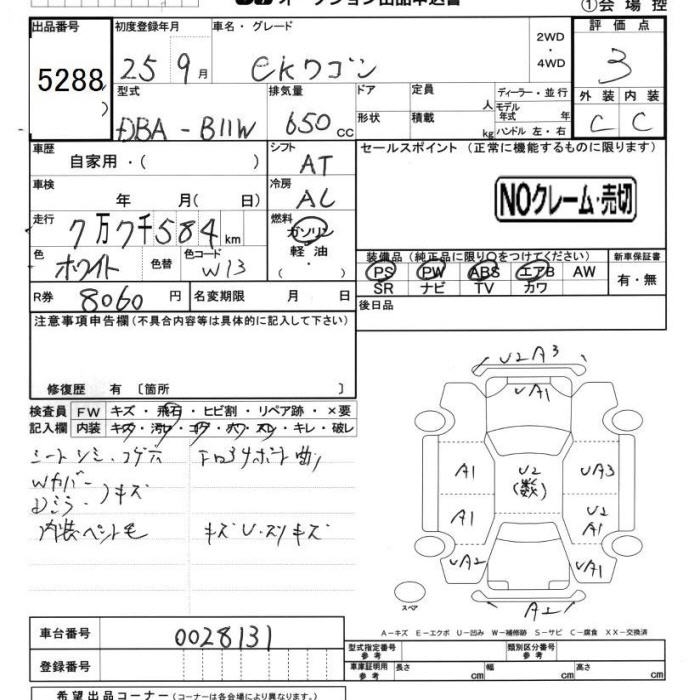 オークション出品申込書
①会場控
出品番号 初度登録年月 車名・グレード 2WD ・ 4WD 評価点
5288 25 9月 ekワゴン 3
型式 排気量 ドア 定員 人 ディーラー・並行 外装 内装
DBA-B11W 650cc 形状 積載 kg モデル年式 年 ハンドル 左・右 C C
車歴 自家用・( ) シフト AT セールスポイント (正常に機能するものに限ります)
車検 年 月( 日) 冷房 AC
NOクレーム・売切
走行 7万7千584km 燃料 ガソリン 軽油 ・( )
色 ホワイト 色替 色コード W13
装備品 (純正品に限り○をつけてください) 新車保証書
PS PW ABS エアB AW 有・無
SR ナビ TV カワ
R券 8060円 名変期限 月 日
後日品
注意事項申告欄 (不具合内容等は具体的に記入して下さい)
修復歴 有 〔箇所 〕
検査員 FW キズ・飛石・ヒビ割・リペア跡・×要
記入欄 内装 キズ・汚レ・コゲ・ハワ・スレ・キレ・破レ
シートシミ・コゲ穴
Wカバー
Dミラー キズ
内装ペット毛 キズU・スリキズ
U2 A3
UA1
A1 U2 (数) UA3
A1 U2 A1
UA2 UA1
スペア A2
A-キズ E-エクボ U-凹み W-補修跡 S-サビ C-腐食 XX-交換済
車台番号 0028131
型式指定番号 参考 類別区分番号 参考
登録番号
車庫証明用 参考 長さ cm 幅 cm 高さ cm
希望出品コーナー (コーナーは各会場により異なります。)